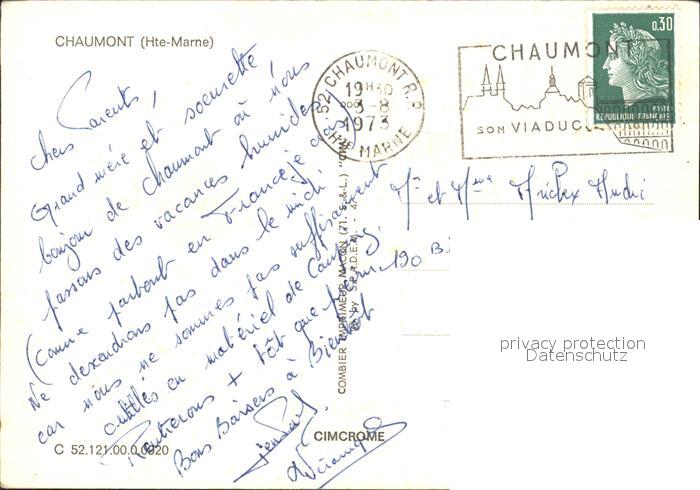 CHAUMONT (Hte-Marne)
chers Parents,
Grand mère et soeurette,
bonjour de Chaumont où nous
passons des vacances humides
(comme partout en France) je
Ne descendrons pas dans le midi
car nous ne sommes pas suffisamment
outillés en matériel de Camping.
Rentrerons + tôt que
Bons Baisers à Bientôt
C 52.121.00.0.0020
CIMCROME
COMBIER IMPRIMEUR MACON (71. S.-&-L.) "CIM"
© by S.P.A.D.E.M. - 47
52 CHAUMONT R.P.
19H30
3-8
1973
Hte MARNE
CHAUMONT
SON VIADUC
0,30
POSTES
REPUBLIQUE FRANÇAISE
Mr et Mme Andri
190 B
privacy protection
Datenschutz